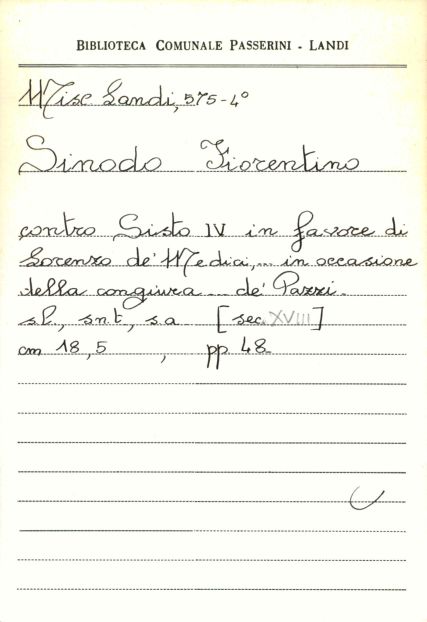 BIBLIOTECA COMUNALE PASSERINI - LANDI
Misc Landi, 575-4°
Sinodo Fiorentino
contro Sisto IV in favore di
Lorenzo de' Medici,... in occasione
della congiura ... de' Pazzi.
s.l., s.n.t, s.a [sec. XVIII]
cm 18,5 , pp. 48